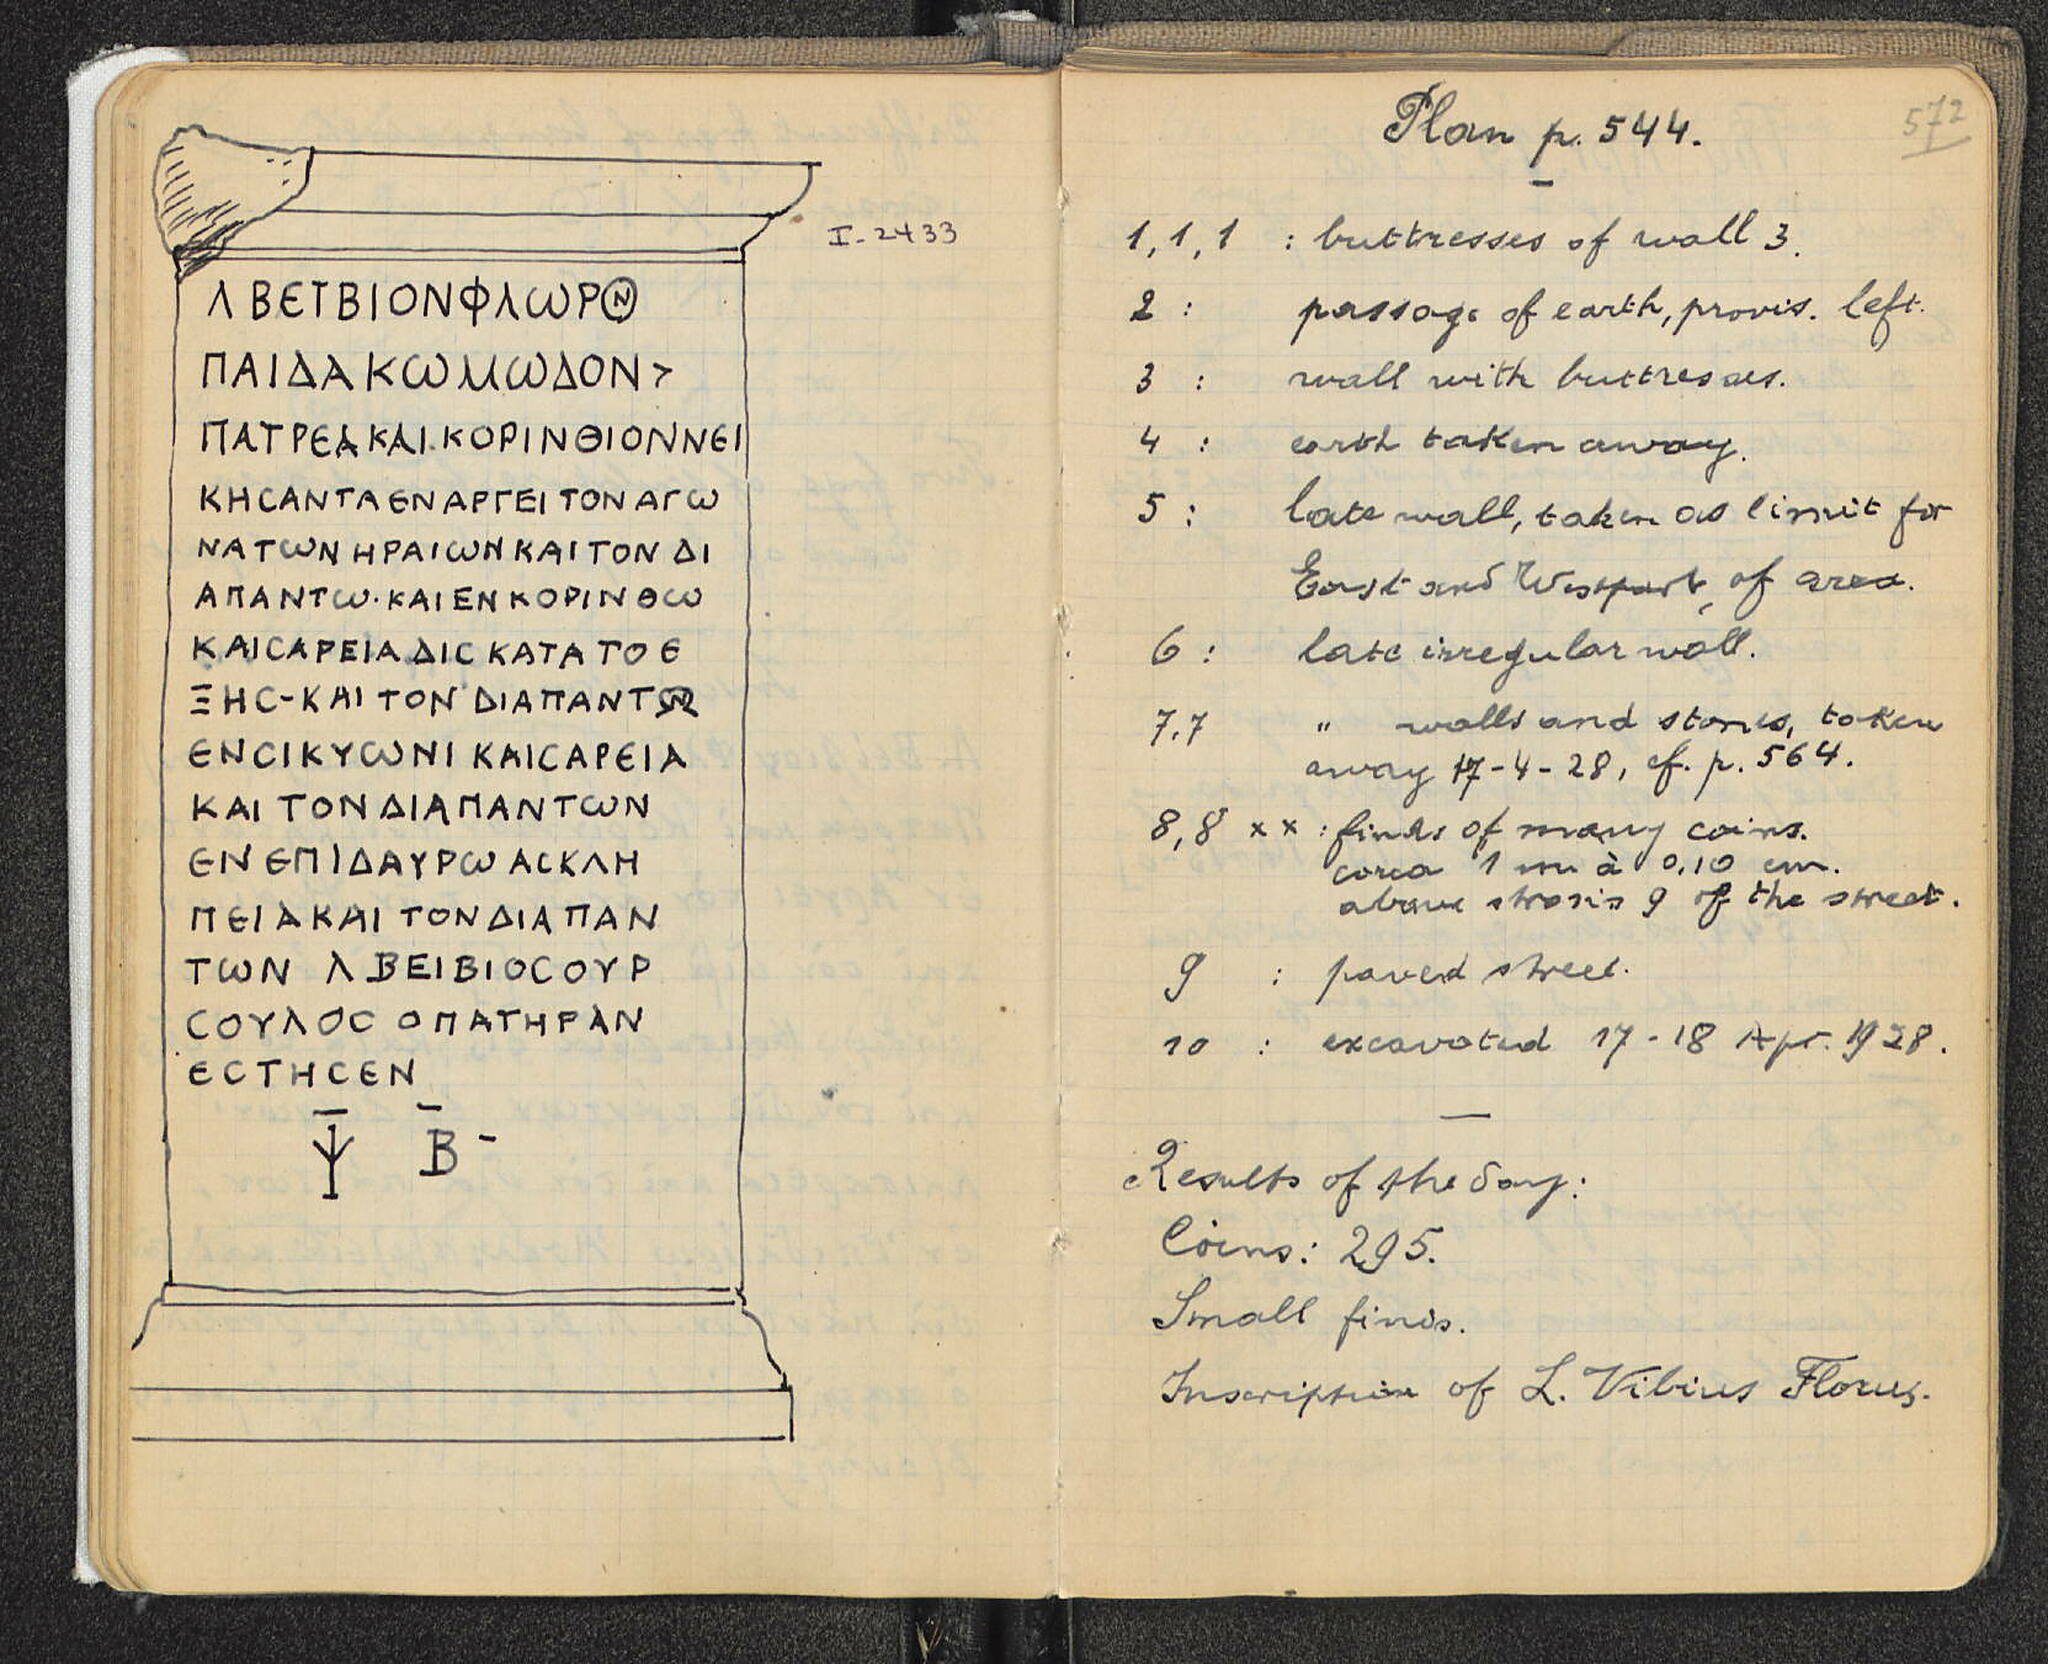 I-2433
Λ ΒΕΙΒΙΟΝ ΦΛΩΡΟΝ
ΠΑΙΔΑ ΚΩΜΩΔΟΝ >
ΠΑΤΡΕΑ ΚΑΙ.ΚΟΡΙΝΘΙΟΝ ΝΕΙ
ΚΗϹΑΝΤΑ ΕΝ ΑΡΓΕΙ ΤΟΝ ΑΓΩ
ΝΑ ΤΩΝ ΗΡΑΙΩΝ ΚΑΙ ΤΟΝ ΔΙ
ΑΠΑΝΤΩ· ΚΑΙ ΕΝ ΚΟΡΙΝΘΩ
ΚΑΙϹΑΡΕΙΑ ΔΙϹ ΚΑΤΑ ΤΟ Ε
ΞΗϹ-ΚΑΙ ΤΟΝ ΔΙΑ ΠΑΝΤΩΝ
ΕΝ ϹΙΚΥΩΝΙ ΚΑΙϹΑΡΕΙΑ
ΚΑΙ ΤΟΝ ΔΙΑ ΠΑΝΤΩΝ
ΕΝ ΕΠΙΔΑΥΡΩ ΑϹΚΛΗ
ΠΕΙΑ ΚΑΙ ΤΟΝ ΔΙΑ ΠΑΝ
ΤΩΝ Λ ΒΕΙΒΙΟϹ ΟΥΡ
ϹΟΥΛΟϹ Ο ΠΑΤΗΡ ΑΝ
ΕϹΤΗϹΕΝ
Ψ Β -
572
Plan p. 544.
1, 1, 1 : buttresses of wall 3.
2 : passage of earth, provis. left.
3 : wall with buttresses.
4 : earth taken away.
5 : late wall, taken as limit for
East and Westpart, of area.
6 : late irregular wall.
7,7 " walls and stones, taken
away 17-4-28, cf. p. 564.
8, 8 x x : finds of many coins.
circa 1 m à 0,10 cm.
above strosis 9 of the street.
9 : paved street.
10 : excavated 17-18 Apr. 1928.
Results of the day:
Coins: 295.
Small finds.
Inscription of L. Vibius Florus.